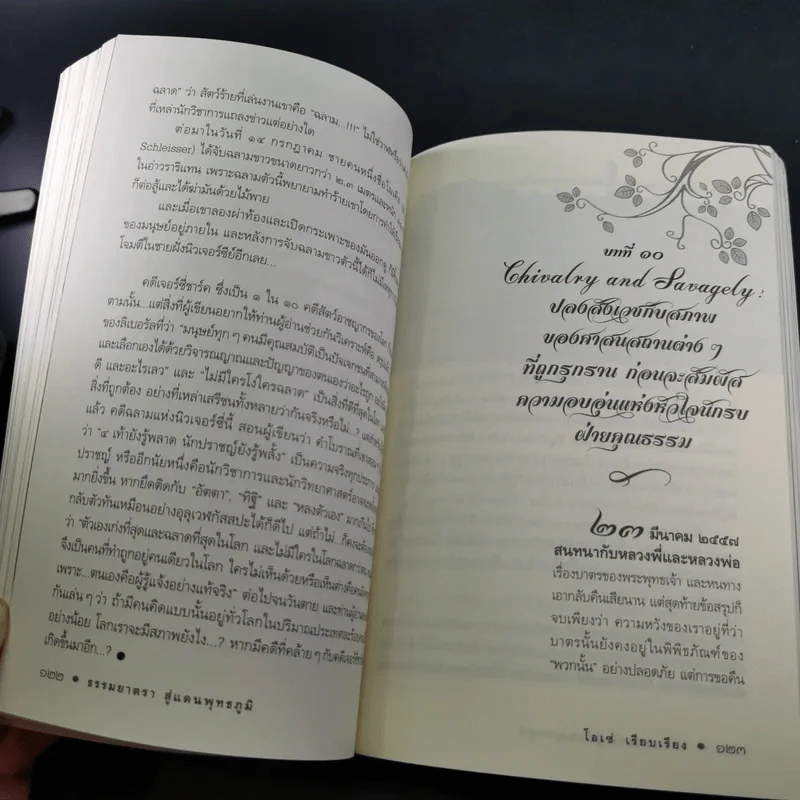 ฉลาด" ว่า สัตว์ร้ายที่เล่นงานเขาคือ "ฉลาม...!!!" ไม่ใช่
ที่เหล่านักวิชาการแถลงข่าวแต่อย่างใด
ต่อมาในวันที่ ๑๔ กรกฎาคม ชายคนหนึ่งชื่อ
Schleisser) ได้จับฉลามขาวขนาดยาวกว่า ๒.๓ เมตร
ในอ่าวราริแทน เพราะฉลามตัวนี้พยายามทำร้ายเขาโดยการ
ก็ต่อสู้และได้ฆ่ามันด้วยไม้พาย
และเมื่อเขาลองผ่าท้องและเปิดกระเพาะของมันออกดู
ของมนุษย์อยู่ภายใน และหลังการจับฉลามขาวตัวนี้ได้ก็ไม่มี
โจมตีในชายฝั่งนิวเจอร์ซีย์อีกเลย...
คดีเจอร์ซี่ชาร์ค ซึ่งเป็น ๑ ใน ๑๐ คดีสัตว์อาชญากรของโลก
ตามนั้น...แต่สิ่งที่ผู้เขียนอยากให้ท่านผู้อ่านช่วยกันวิเคราะห์คือ
ของลิเบอรัลที่ว่า "มนุษย์ทุก ๆ คนมีคุณสมบัติเป็นปัจเจกชน
และเลือกเองได้ด้วยวิจารณญาณและปัญญาของตนเองว่าอะไรถูก
ดี และอะไรเลว" และ "ไม่มีใครโง่ใครฉลาด" เป็นสิ่งที่ดีที่สุดในโลก
สิ่งที่ถูกต้อง อย่างที่เหล่าเสรีชนทั้งหลายว่ากันจริงหรือไม่...?
แล้ว คดีฉลามแห่งนิวเจอร์ซี่นี้ สอนผู้เขียนว่า คำโบราณที่
ว่า "๔ เท้ายังรู้พลาด นักปราชญ์ยังรู้พลั้ง" เป็นความจริงทุกประการ
ปราชญ์ หรืออีกนัยหนึ่งคือนักวิชาการและนักวิทยาศาสตร์อาจจะ
มากยิ่งขึ้น หากยึดติดกับ "อัตตา", "ทิฐิ" และ "หลงตัวเอง"
กลับตัวทันเหมือนอย่างอุลุเวฬกัสสปะได้ก็ดีไป แต่ถ้าไม่...ก็คงจะ
ว่า "ตัวเองเก่งที่สุดและฉลาดที่สุดในโลก และไม่มีใครในโลกฉลาดกว่า
จึงเป็นคนที่ทำถูกอยู่คนเดียวในโลก ใครไม่เห็นด้วยหรือเห็นต่างคือ
เพราะ...ตนเองคือผู้รู้แจ้งอย่างแท้จริง" ต่อไปจนวันตาย และท่านผู้อ่าน
กันเล่น ๆ ว่า ถ้ามีคนคิดแบบนั้นอยู่ทั่วโลกในปริมาณประเทศละ
อย่างน้อย โลกเราจะมีสภาพยังไง...? หากมีคดีที่คล้าย ๆ กับคดี
เกิดขึ้นมาอีก...? ●
๑๒๒ ● ธรรมยาตรา สู่แดนพุทธภูมิ
บทที่ ๑๐
Chivalry and Savagely :
ปลงสังเวชกับสภาพ
ของศาสนสถานต่าง ๆ
ที่ถูกรุกราน ก่อนจะสัมผัส
ความอบอุ่นแห่งหัวใจนักรบ
ฝ่ายคุณธรรม
๒๓ มีนาคม ๒๕๕๗
สนทนากับหลวงพี่และหลวงพ่อ
เรื่องบาตรของพระพุทธเจ้า และหนทาง
เอากลับคืนเสียนาน แต่สุดท้ายข้อสรุปก็
จบเพียงว่า ความหวังของเราอยู่ที่ว่า
บาตรนั้นยังคงอยู่ในพิพิธภัณฑ์ของ
"พวกนั้น" อย่างปลอดภัย แต่การขอคืน
โอเซ่ เรียบเรียง ● ๑๒๓